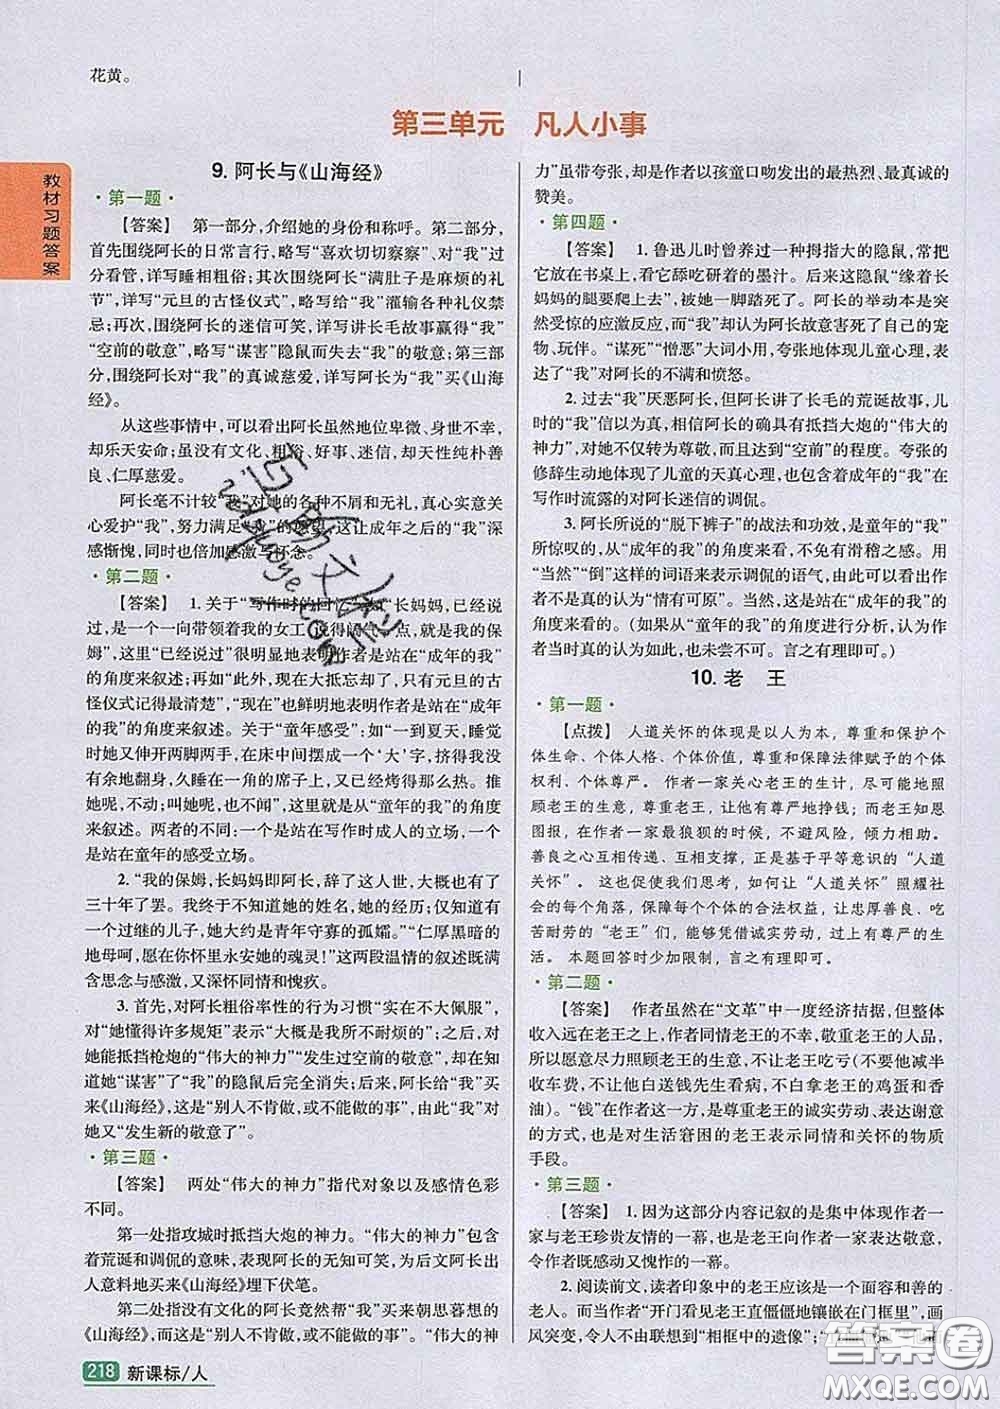 花黄。
第三单元 凡人小事
教材习题答案
9. 阿长与《山海经》
·第一题·
【答案】 第一部分,介绍她的身份和称呼。第二部分,
首先围绕阿长的日常言行,略写“喜欢切切察察”、对“我”过
分看管,详写睡相粗俗;其次围绕阿长“满肚子是麻烦的礼
节”,详写“元旦的古怪仪式”,略写给“我”灌输各种礼仪禁
忌;再次,围绕阿长的迷信可笑,详写讲长毛故事赢得“我”
“空前的敬意”,略写“谋害”隐鼠而失去“我”的敬意;第三部
分,围绕阿长对“我”的真诚慈爱,详写阿长为“我”买《山海
经》。
从这些事情中,可以看出阿长虽然地位卑微、身世不幸,
却乐天安命;虽没有文化、粗俗、好事、迷信,却天性纯朴善
良、仁厚慈爱。
阿长毫不计较“我”对她的各种不屑和无礼,真心实意关
心爱护“我”,努力满足“我”的愿望,这让成年之后的“我”深
感惭愧,同时也倍加感激与怀念。
·第二题·
【答案】 1. 关于“写作时的回忆”:如“长妈妈,已经说
过,是一个一向带领着我的女工,说得阔气一点,就是我的保
姆”,这里“已经说过”很明显地表明作者是站在“成年的我”
的角度来叙述;再如“此外,现在大抵忘却了,只有元旦的古
怪仪式记得最清楚”,“现在”也鲜明地表明作者是站在“成年
的我”的角度来叙述。关于“童年感受”:如“一到夏天,睡觉
时她又伸开两脚两手,在床中间摆成一个‘大’字,挤得我没
有余地翻身,久睡在一角的席子上,又已经烤得那么热。推
她呢,不动;叫她呢,也不闻”,这里就是从“童年的我”的角度
来叙述。两者的不同:一个是站在写作时成人的立场,一个
是站在童年的感受立场。
2. “我的保姆,长妈妈即阿长,辞了这人世,大概也有了
三十年了罢。我终于不知道她的姓名,她的经历;仅知道有
一个过继的儿子,她大约是青年守寡的孤孀。”“仁厚黑暗的
地母呵,愿在你怀里永安她的魂灵!”这两段温情的叙述既饱
含思念与感激,又深怀同情和愧疚。
3. 首先,对阿长粗俗率性的行为习惯“实在不大佩服”,
对“她懂得许多规矩”表示“大概是我所不耐烦的”;之后,对
她能抵挡枪炮的“伟大的神力”“发生过空前的敬意”,在知
道她“谋害”了“我”的隐鼠后完全消失;最后,她给“我”买来
《山海经》,这是“别人不肯做,或不能做的事”,由此“我”对
她又“发生新的敬意了”。
·第三题·
【答案】 两处“伟大的神力”指代对象以及感情色彩
不同。
第一处指攻城时抵挡大炮的神力。“伟大的神力”包含
着荒诞和调侃的意味,表现阿长的无知可笑,为后文阿长出
人意料地买来《山海经》埋下伏笔。
第二处指没有文化的阿长竟然帮“我”买来朝思暮想的
《山海经》,而这是“别人不肯做,或不能做的事”。“伟大的神
力”虽带夸张,却是作者以孩童口吻发出的最热烈、最真诚的
赞美。
·第四题·
【答案】 1. 鲁迅儿时曾养过一种拇指大的隐鼠,常把
它放在书桌上,看它舔吃研着的墨汁。后来这隐鼠“缘着长
妈妈的腿要爬上去”,被她一脚踏死了。阿长的举动本是突
然受惊的应激反应,而“我”却认为阿长故意害死了自己的宠
物、玩伴。“谋死”“憎恶”大词小用,夸张地体现儿童心理,表
达了“我”对阿长的不满和愤怒。
2. 过去“我”厌恶阿长,但阿长讲了长毛的荒诞故事,儿
时的“我”信以为真,相信阿长的确具有抵挡大炮的“伟大的
神力”,对她不仅转为尊敬,而且达到“空前”的程度。夸张的
修辞生动地体现了儿童的天真心理,也包含着成年的“我”在
写作时流露的对阿长迷信的调侃。
3. 阿长所说的“脱下裤子”的战法和功效,是童年的“我”
所惊叹的,从“成年的我”的角度来看,不免有滑稽之感。用
“当然”“倒”这样的词语来表示调侃的语气,由此可以看出作
者不是真的认为“情有可原”。当然,这是站在“成年的我”的
角度来看的。(如果从“童年的我”的角度进行分析,认为作
者当时真的认为如此,也未尝不可。言之有理即可。)
10. 老 王
·第一题·
【点拨】 人道关怀的体现是以人为本,尊重和保护个
体生命、个体人格、个体价值,尊重和保障法律赋予的个体
权利、个体尊严。 作者一家关心老王的生计,尽可能地照
顾老王的生意,尊重老王,让他有尊严地挣钱;而老王知恩
图报,在作者一家最狼狈的时候,不避风险,倾力相助。
善良之心互相传递、互相支撑,正是基于平等意识的“人道
关怀”。 这也促使我们思考,如何让“人道关怀”照耀社会
的每个角落,保障每个个体的合法权益,让忠厚善良、吃
苦耐劳的“老王”们,能够凭借诚实劳动,过上有尊严的生
活。 本题回答时少加限制,言之有理即可。
·第二题·
【答案】 作者虽然在“文革”中一度经济拮据,但整体
收入远在老王之上,作者同情老王的不幸,敬重老王的人品,
所以愿意尽力照顾老王的生意,不让老王吃亏(不要他减半
收车费,不要他白送钱先生看病,不白要他的鸡蛋和香
油)。“钱”在作者这一方,是尊重老王的诚实劳动、表达谢意
的方式,也是对生活窘困的老王表示同情和关怀的物质
手段。
·第三题·
【答案】 1. 因为这部分内容记叙的是集中体现作者一
家与老王珍贵友情的一幕,也是老王向作者一家表达敬意,
令作者既感动又愧怍的一幕。
2. 阅读前文,读者印象中的老王应该是一个面容和善的
老人。而当作者“开门看见老王直僵僵地镶嵌在门框里”,画
风突变,令人不由联想到“相框中的遗像”;
218 新课标/人
答案圈
MXQE.COM